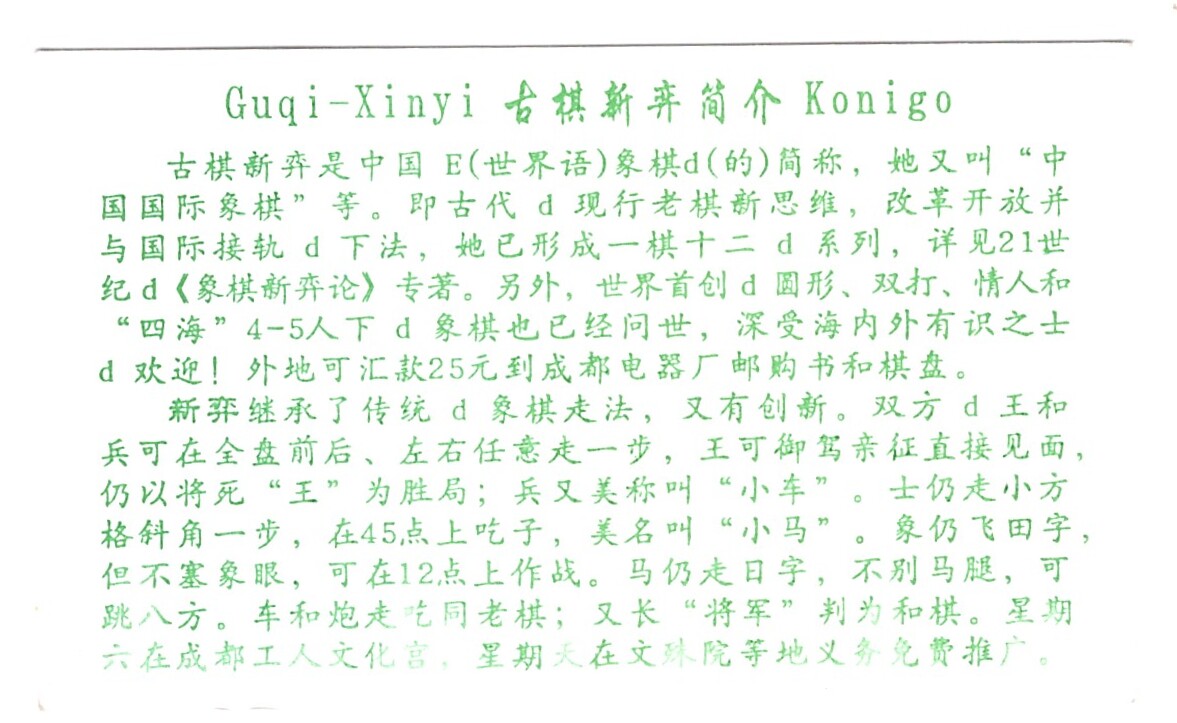 Guqi-Xinyi 古棋新弈简介 Konigo
古棋新弈是中国 E(世界语)象棋d(的)简称，她又叫“中
国国际象棋”等。即古代 d 现行老棋新思维，改革开放并
与国际接轨 d 下法，她已形成一棋十二 d 系列，详见21世
纪d《象棋新弈论》专著。另外，世界首创 d 圆形、双打、情人和
“四海”4-5人下 d 象棋也已经问世，深受海内外有识之士
d 欢迎！外地可汇款25元到成都电器厂邮购书和棋盘。
新弈继承了传统 d 象棋走法，又有创新。双方 d 王和
兵可在全盘前后、左右任意走一步，王可御驾亲征直接见面，
仍以将死“王”为胜局；兵又美称叫“小车”。士仍走小方
格斜角一步，在45点上吃子，美名叫“小马”。象仍飞田字，
但不塞象眼，可在12点上作战。马仍走日字，不别马腿，可
跳八方。车和炮走吃同老棋；又长“将军”判为和棋。星期
六在成都工人文化宫，星期天在文殊院等地义务免费推广。